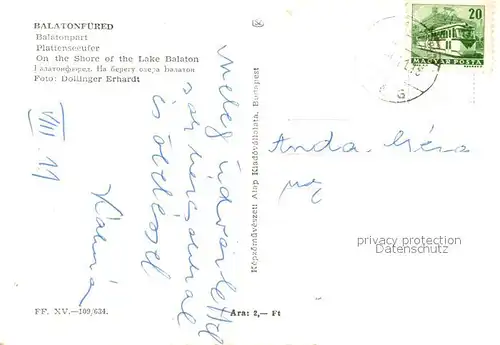 BALATONFÜRED
Balatonpart
Plattenseeufer
On the Shore of the Lake Balaton
Балатонфюред. На берегу озера Балатон
Foto: Dollinger Erhardt
VIII. 11
Meleg üdvözlettel
és öleléssel
Képzőművészeti Alap Kiadóvállalata, Budapest
20
MAGYAR POSTA
Anda Géza
privacy protection
Datenschutz
FF. XV.—109/634.
Ára: 2,— Ft